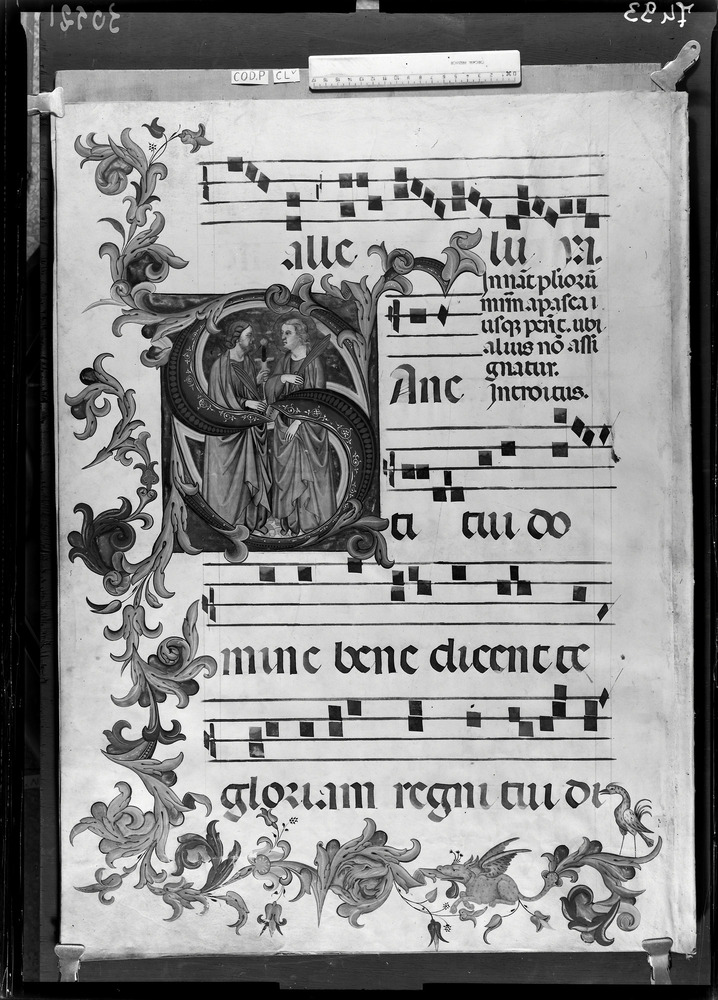 30521
7493
COD.P CLV
alle lu ya.
In nāt pliorū
mr̄m a pascā i
usq3 pent. ubi
alius nō assi
gnatur.
Introitus.
Sanc
ti tui do
mine bene dicent te
gloriam regni tui di